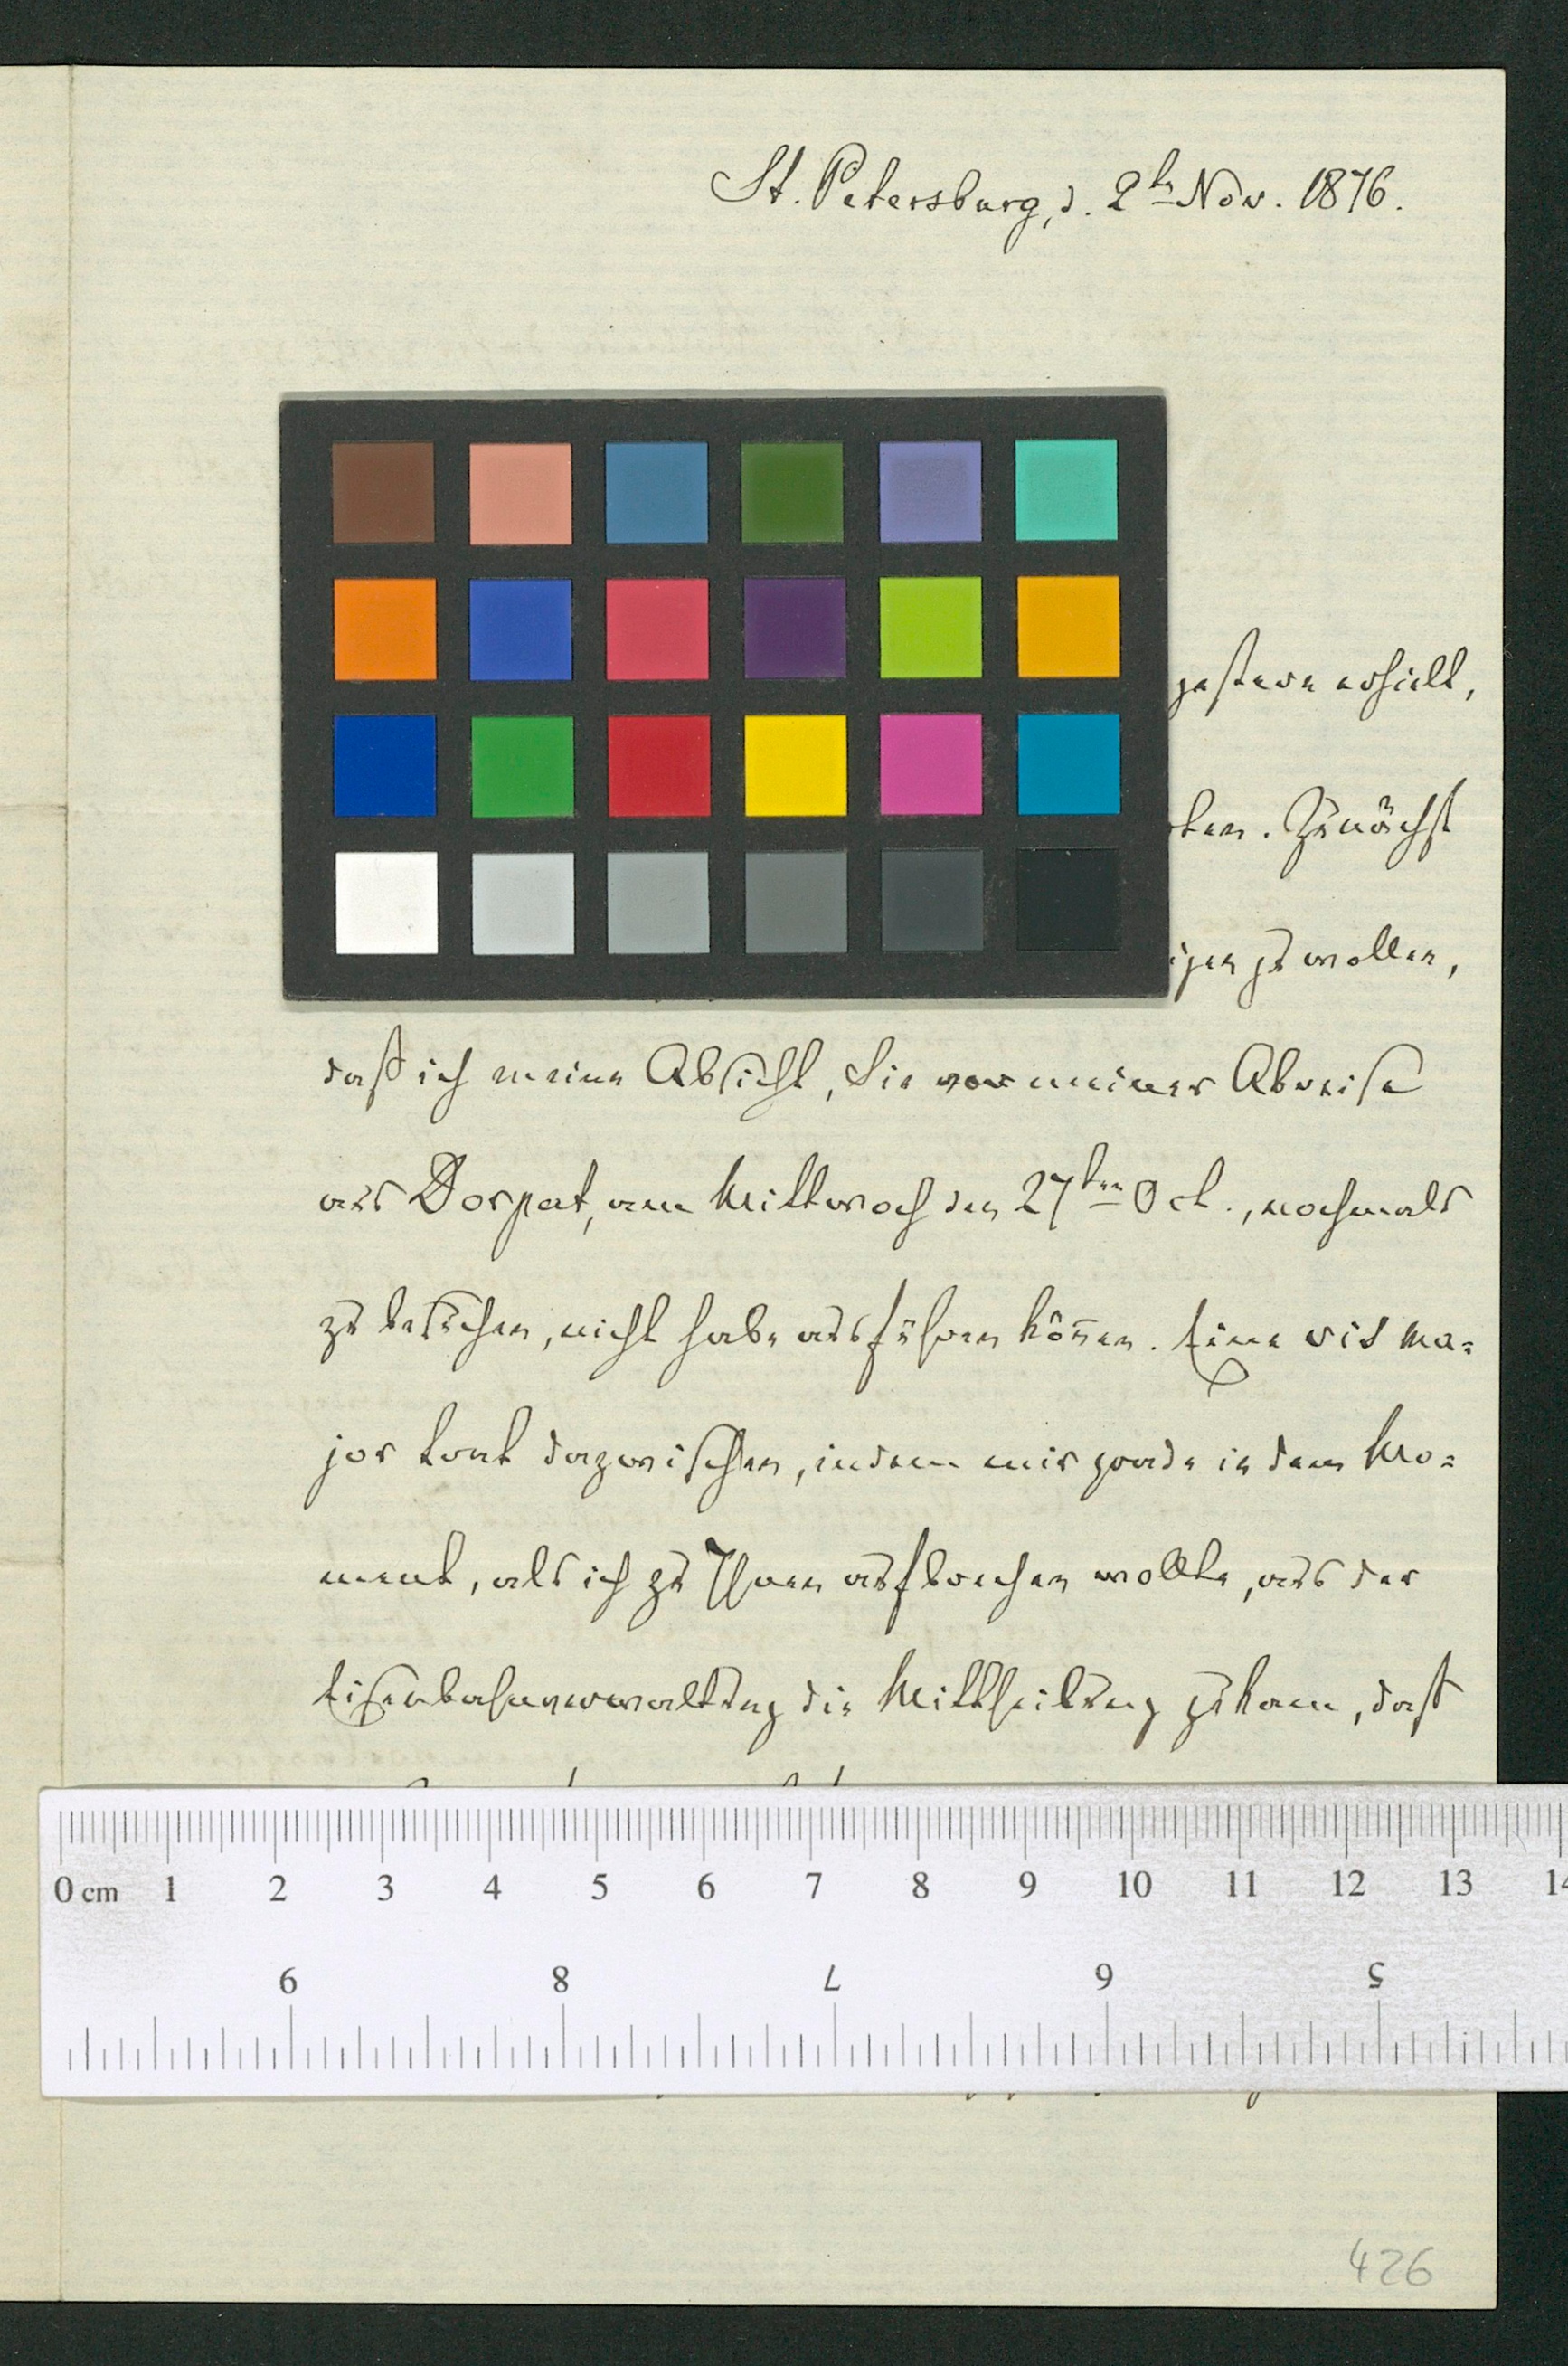 St. Petersburg, d. 2ten Nov. 1876.
gestern erhielt,
Zunächst
zu wollen,
daß ich meine Absicht, Sie vor meiner Abreise
aus Dorpat, am Mittwoch den 27ten Oct., nochmals
zu besuchen, nicht habe ausführen kön̄en. Eine vis ma-
jor trat dazwischen, indem mir grade in dem Mo-
ment, als ich zu Ihnen aufbrechen wollte, aus der
Eisenbahnverwaltung die Mittheilung zukam, daß
0 cm 1 2 3 4 5 6 7 8 9 10 11 12 13 14
9 8 7 6 5
426